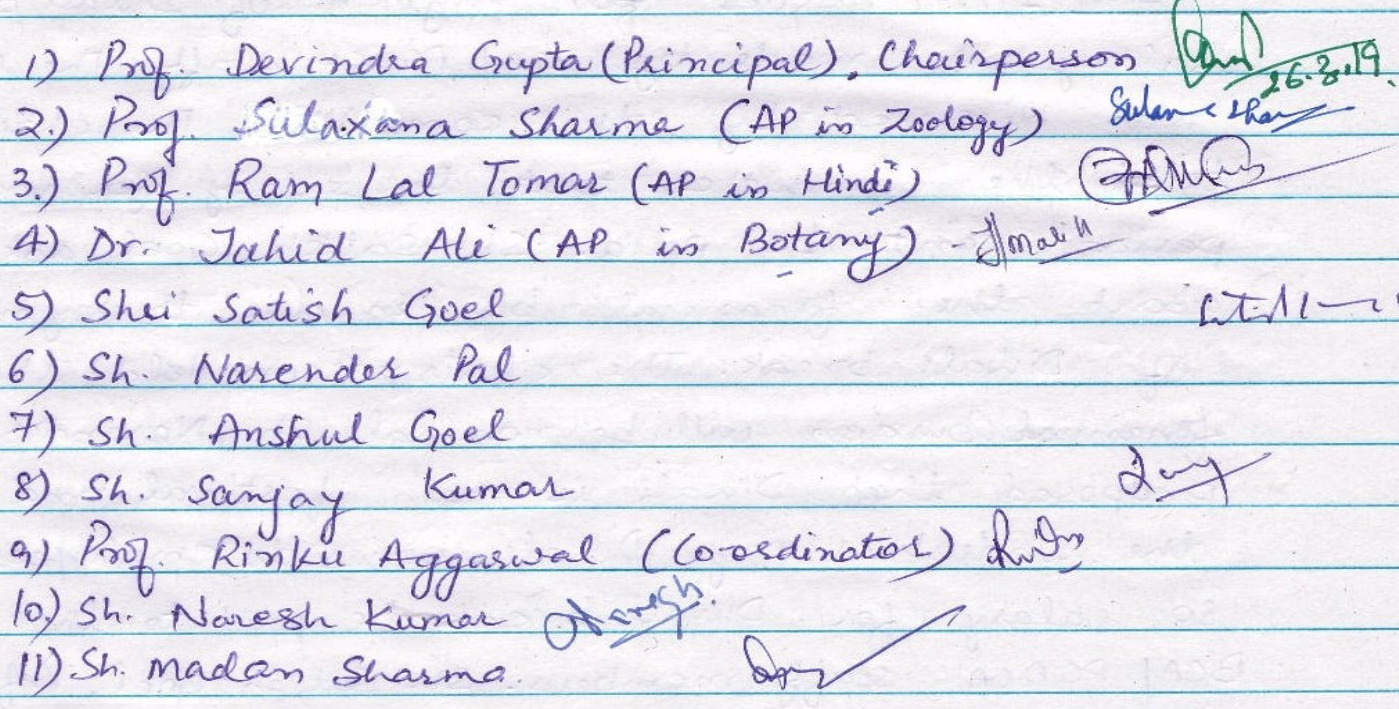 1) Prof. Devindra Gupta (Principal), Chairperson
26.3.19.
2.) Prof. Sulaxana Sharma (AP in Zoology)
3.) Prof. Ram Lal Tomar (AP in Hindi)
4) Dr. Jahid Ali (AP in Botany) - JMalik
5) Shri Satish Goel
6) Sh. Narender Pal
7) Sh. Anshul Goel
8) Sh. Sanjay Kumar
9) Prof. Rinku Aggarwal (Co-ordinator)
10) Sh. Naresh Kumar Naresh.
11) Sh. Madan Sharma.